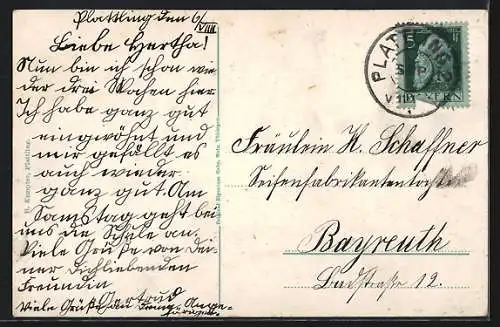 Plattling den 6/VIII
Liebe Hertha!
Nun bin ich schon wie
der drei Wochen hier
Ich habe ganz gut
eingwöhnt und
mir gefällt es
auch wieder
ganz gut. Am
Samstag geht bei
uns die Schule an.
Viele Grüße von Dei-
ner Dichliebenden
Freundin
Gertrud
Viele Grüße an
PLATTLING
5
BAYERN
Fräulein H. Schaffner
Seifenfabrikantentochter
Bayreuth
Badstraße 12.